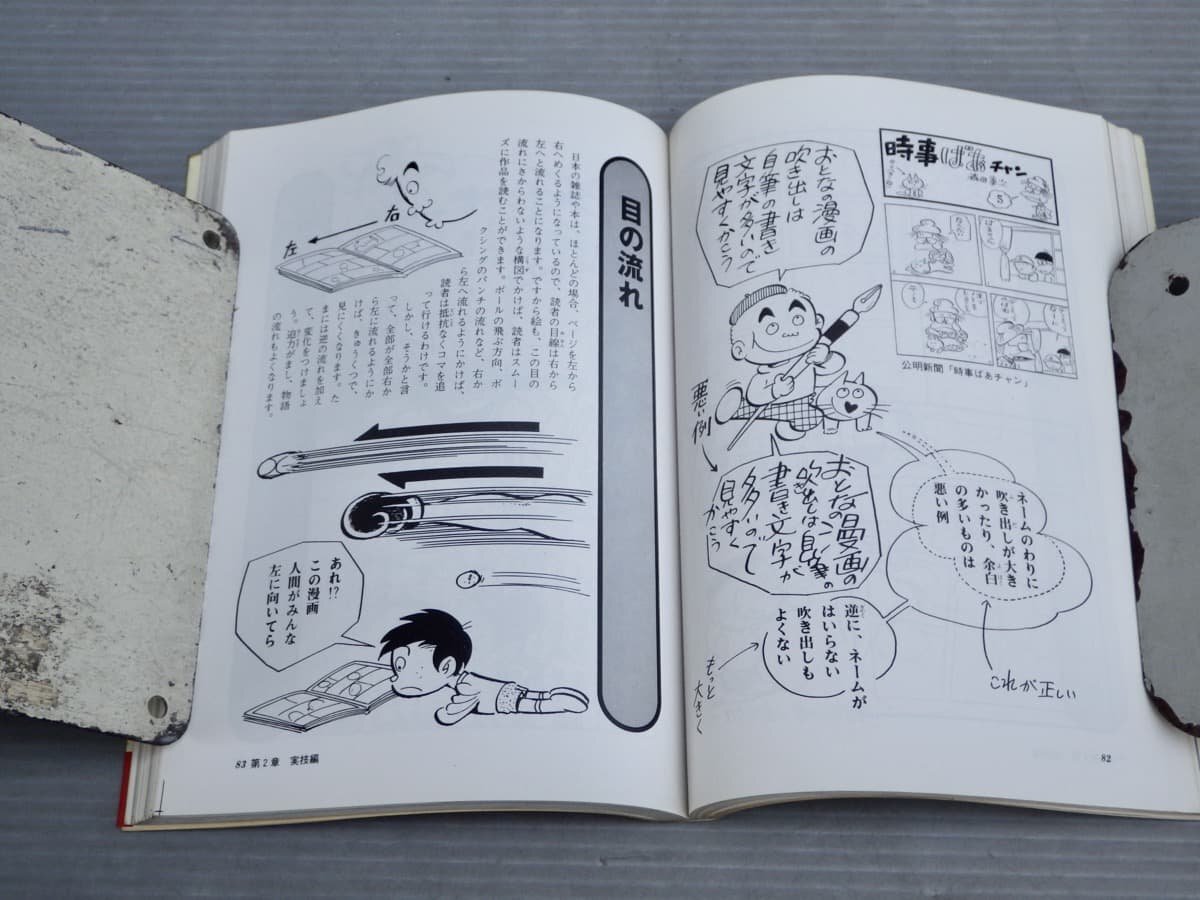 時事ばあチャン
5
公明新聞「時事ばあチャン」
おとなの漫画の
吹き出しは
自筆の書き
文字が多いので
見やすくかこう
悪い例
おとなの漫画の
吹き出しは自筆の
書き文字が
多いので
見やすく
かこう
ネームのわりに
吹き出しが大き
かったり、余白
の多いものは
悪い例
これが正しい
逆に、ネームが
はいらない
吹き出しも
よくない
もっと
大きく
82
目の流れ
日本の雑誌や本は、ほとんどの場合、ページを左から
右へめくるようになっているので、読者の目線は右から
左へと流れることになります。ですから絵も、この目の
流れにさからわないような構図でかけば、読者はスムー
ズに作品を読むことができます。ボールの飛ぶ方向、ボ
クシングのパンチの流れなど、右か
ら左へ流れるようにかけば、
読者は抵抗なくコマを追
って行けるわけです。
しかし、そうかと言
って、全部が全部右か
ら左に流れるようにか
けば、きゅうくつで、
見にくくなります。た
まには逆の流れを加え
て、変化をつけましょ
う。迫力がまし、物語
の流れもよくなります。
右
左
あれ!?
この漫画
人間がみんな
左に向いてら
83 第2章 実技編